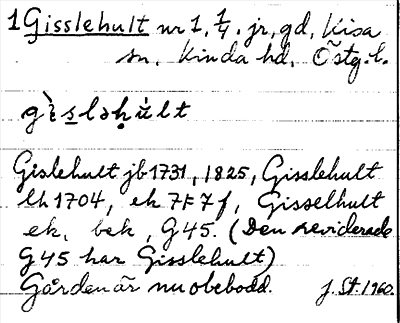 1 Gisslehult nr 1, 1/4. jr, gd, Kisa
sn. Kinda hd. Östg. l.
Gislehult jb 1731, 1825, Gisslehult
lh 1704, ek 7F7f, Gisselhult
ek, bek, G45. (Den reviderade
G45 har Gisslehult)
Gården är nu obebodd. J. St. 1960.